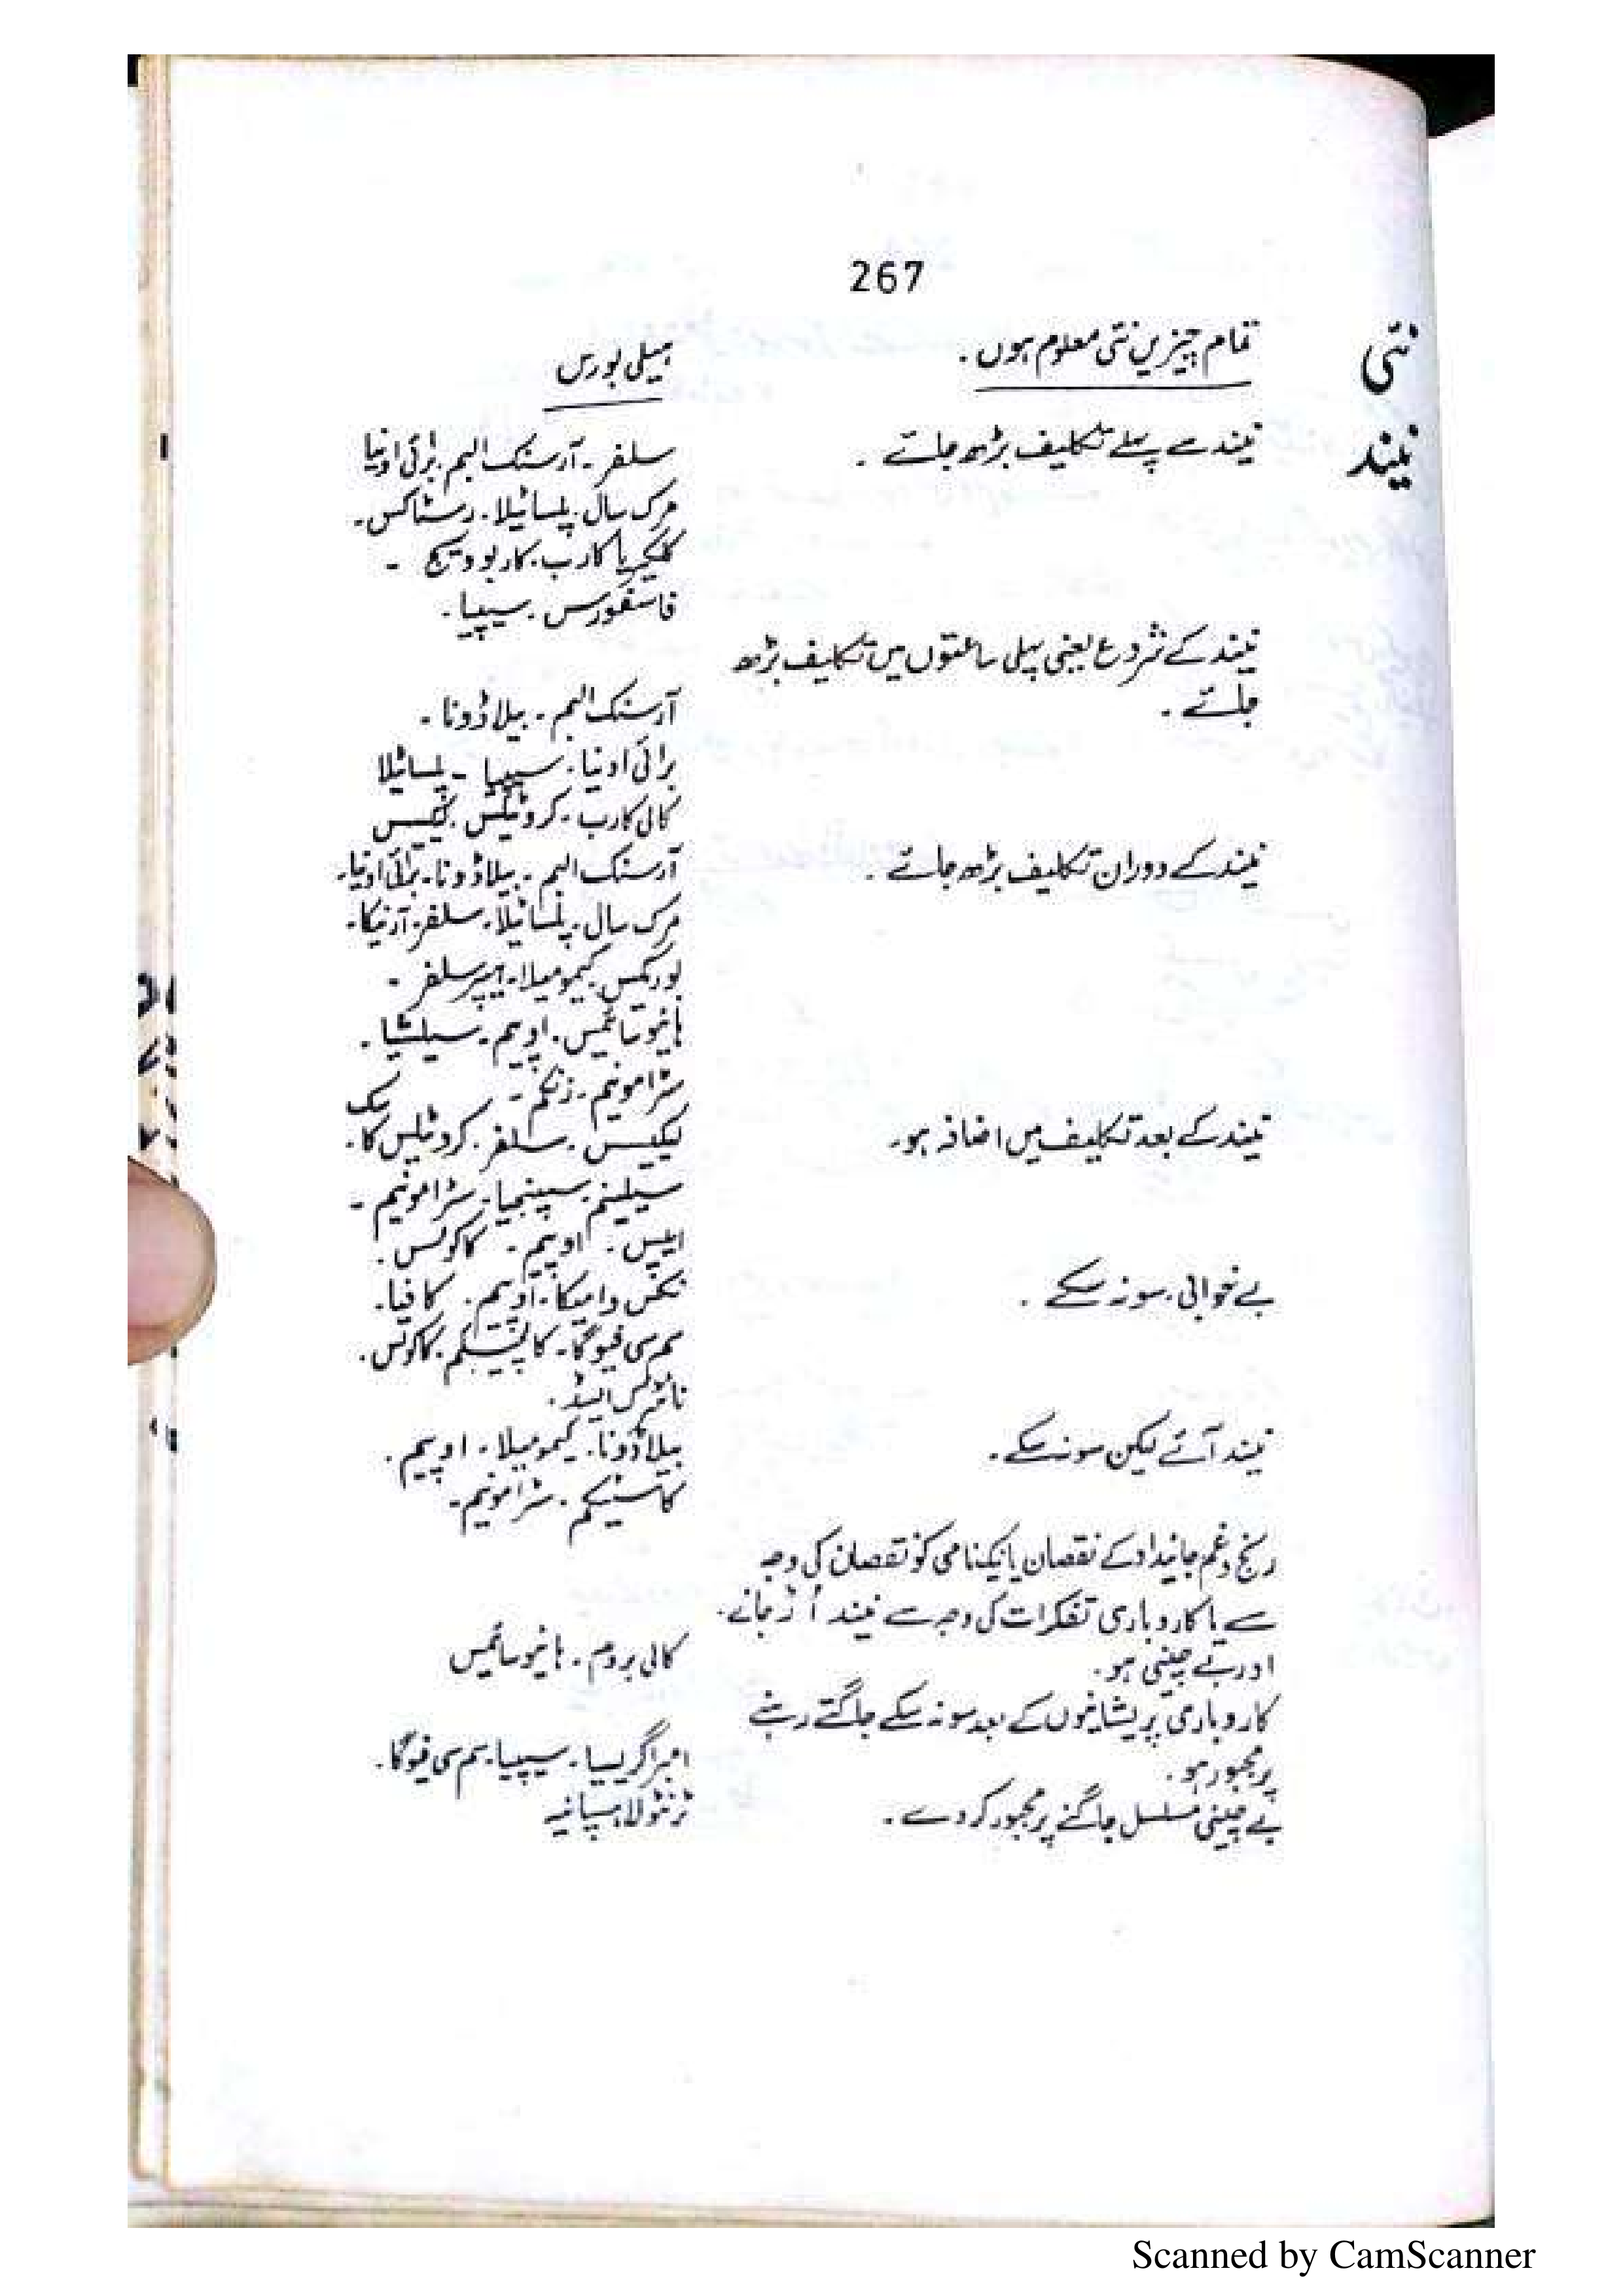 267
نئی تمام چیزیں نئی معلوم ہوں۔ ہیلی بورس
نیند نیند سے پہلے تکلیف بڑھ جائے۔ سلفر۔ آرسنک البم۔ برائی اونیا
مرک سال۔ پلساٹیلا۔ رسٹاکس۔
کلکیریا کارب۔ کاربوویج۔
فاسفورس۔ سیپیا۔
نیند کے شروع یعنی پہلی ساعتوں میں تکلیف بڑھ
جائے۔ آرسنک البم۔ بیلاڈونا۔
برائی اونیا۔ سیپیا۔ پلساٹیلا
کالی کارب۔ کروٹیلس۔ لیکیسس
نیند کے دوران تکلیف بڑھ جائے۔ آرسنک البم۔ بیلاڈونا۔ برائی اونیا۔
مرک سال۔ پلساٹیلا۔ سلفر۔ آرنیکا۔
بورکس۔ کیمومیلا۔ ہیپر سلفر۔
ہائیوسائمس۔ اوپیم۔ سیلیشیا۔
سٹرامونیم۔ زنکم۔
نیند کے بعد تکلیف میں اضافہ ہو۔ لیکیسس۔ سلفر۔ کروٹیلس کا۔
سیلینیم۔ سپنجیا۔ سٹرامونیم۔
ایپس۔ اوپیم۔ کاکولس۔
بے خوابی۔ سو نہ سکے۔ نکس وامیکا۔ اوپیم۔ کافیا۔
سمسی فیوگا۔ کاکولس۔
نائٹرک ایسڈ۔
نیند آئے لیکن سو نہ سکے۔ بیلاڈونا۔ کیمومیلا۔ اوپیم۔
کاسٹیکم۔ سٹرامونیم۔
رنج و غم جائیداد کے نقصان یا نیکنامی کو نقصان کی وجہ
سے یا کاروباری تفکرات کی وجہ سے نیند اُڑ جائے۔
اور بے چینی ہو۔ کالی بروم۔ ہائیوسائمس
کاروباری پریشانیوں کے بعد سو نہ سکے جاگتے رہنے
پر مجبور ہو۔ امبراگریسیا۔ سیپیا۔ سم سی فیوگا۔
بے چینی مسلسل جاگنے پر مجبور کر دے۔ ٹرنٹولا ہسپانیہ
Scanned by CamScanner